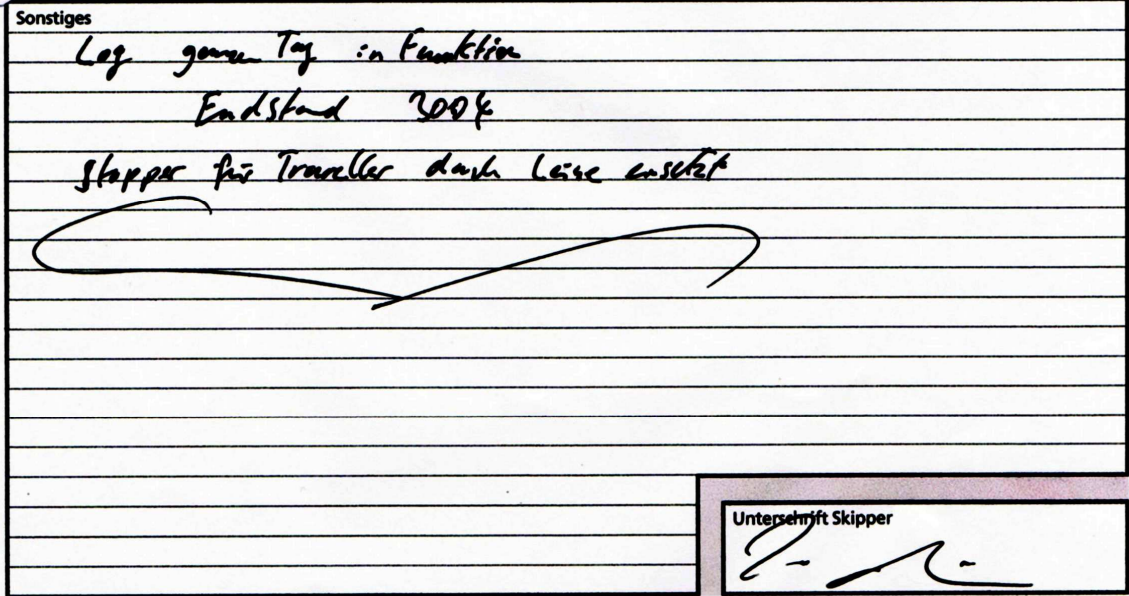 Sonstiges
Log ganzen Tag in Funktion
Endstand 3004
Stopper für Traveller durch Leine ersetzt
Unterschrift Skipper